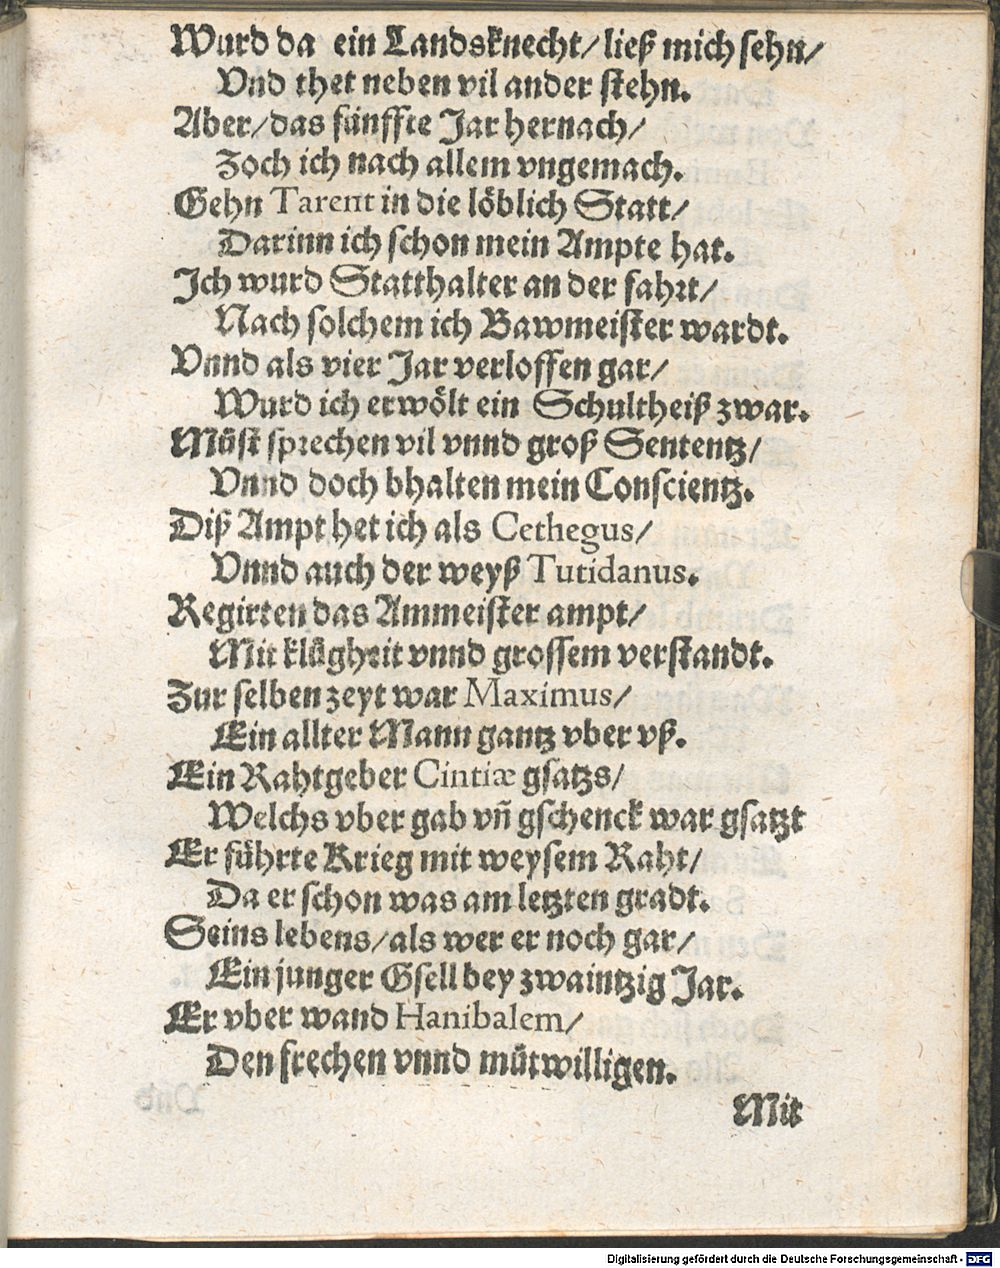 Wurd da ein Landsknecht/ ließ mich sehn/
Vnd thet neben vil ander stehn.
Aber/das fünffte Jar hernach/
Zoch ich nach allem vngemach.
Gehn Tarent in die löblich Statt/
Darinn ich schon mein Ampte hat.
Ich wurd Statthalter an der fahrt/
Nach solchem ich Bawmeister wardt.
Vnnd als vier Jar verloffen gar/
Wurd ich erwölt ein Schultheiß zwar.
Müst sprechen vil vnnd groß Sententz/
Vnnd doch bhalten mein Conscientz.
Diß Ampt het ich als Cethegus/
Vnnd auch der weyß Tutidanus.
Regirten das Ammeister ampt/
Mit klůgheit vnnd grossem verstandt.
Zur selben zeyt war Maximus/
Ein allter Mann gantz vber vß.
Ein Rahtgeber Cintiæ gsatzs/
Welchs vber gab vñ gschenck war gsatzt
Er führte Krieg mit weysem Raht/
Da er schon was am letzten gradt.
Seins lebens/als wer er noch gar/
Ein junger Gsell bey zwaintzig Jar.
Er vber wand Hanibalem/
Den frechen vnnd můtwilligen.
Mit
Digitalisierung gefördert durch die Deutsche Forschungsgemeinschaft - DFG